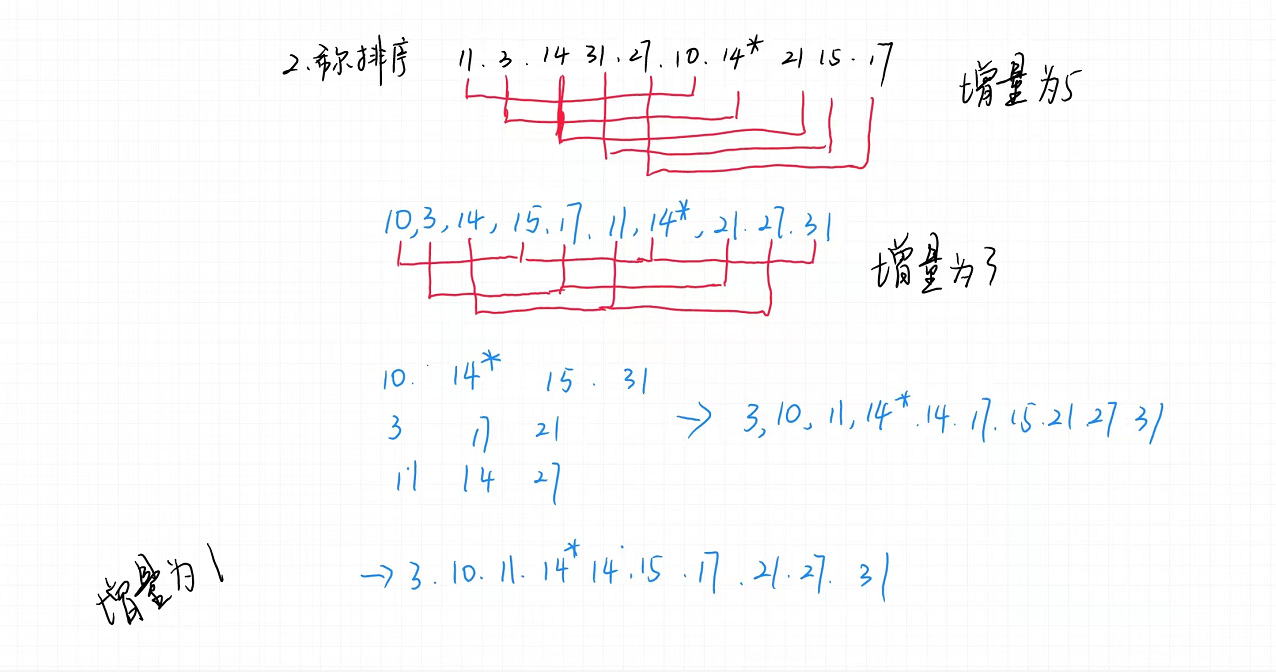 2、希尔排序 11. 3. 14 31. 27. 10. 14* 21 15. 17 增量为5
10, 3, 14, 15. 17. 11, 14*, 21. 27. 31 增量为3
10. 14* 15. 31
3 17 21 → 3, 10, 11, 14*. 14. 17. 15. 21. 27 31
11 14 27
增量为1 → 3. 10. 11. 14* 14. 15. 17. 21. 27. 31